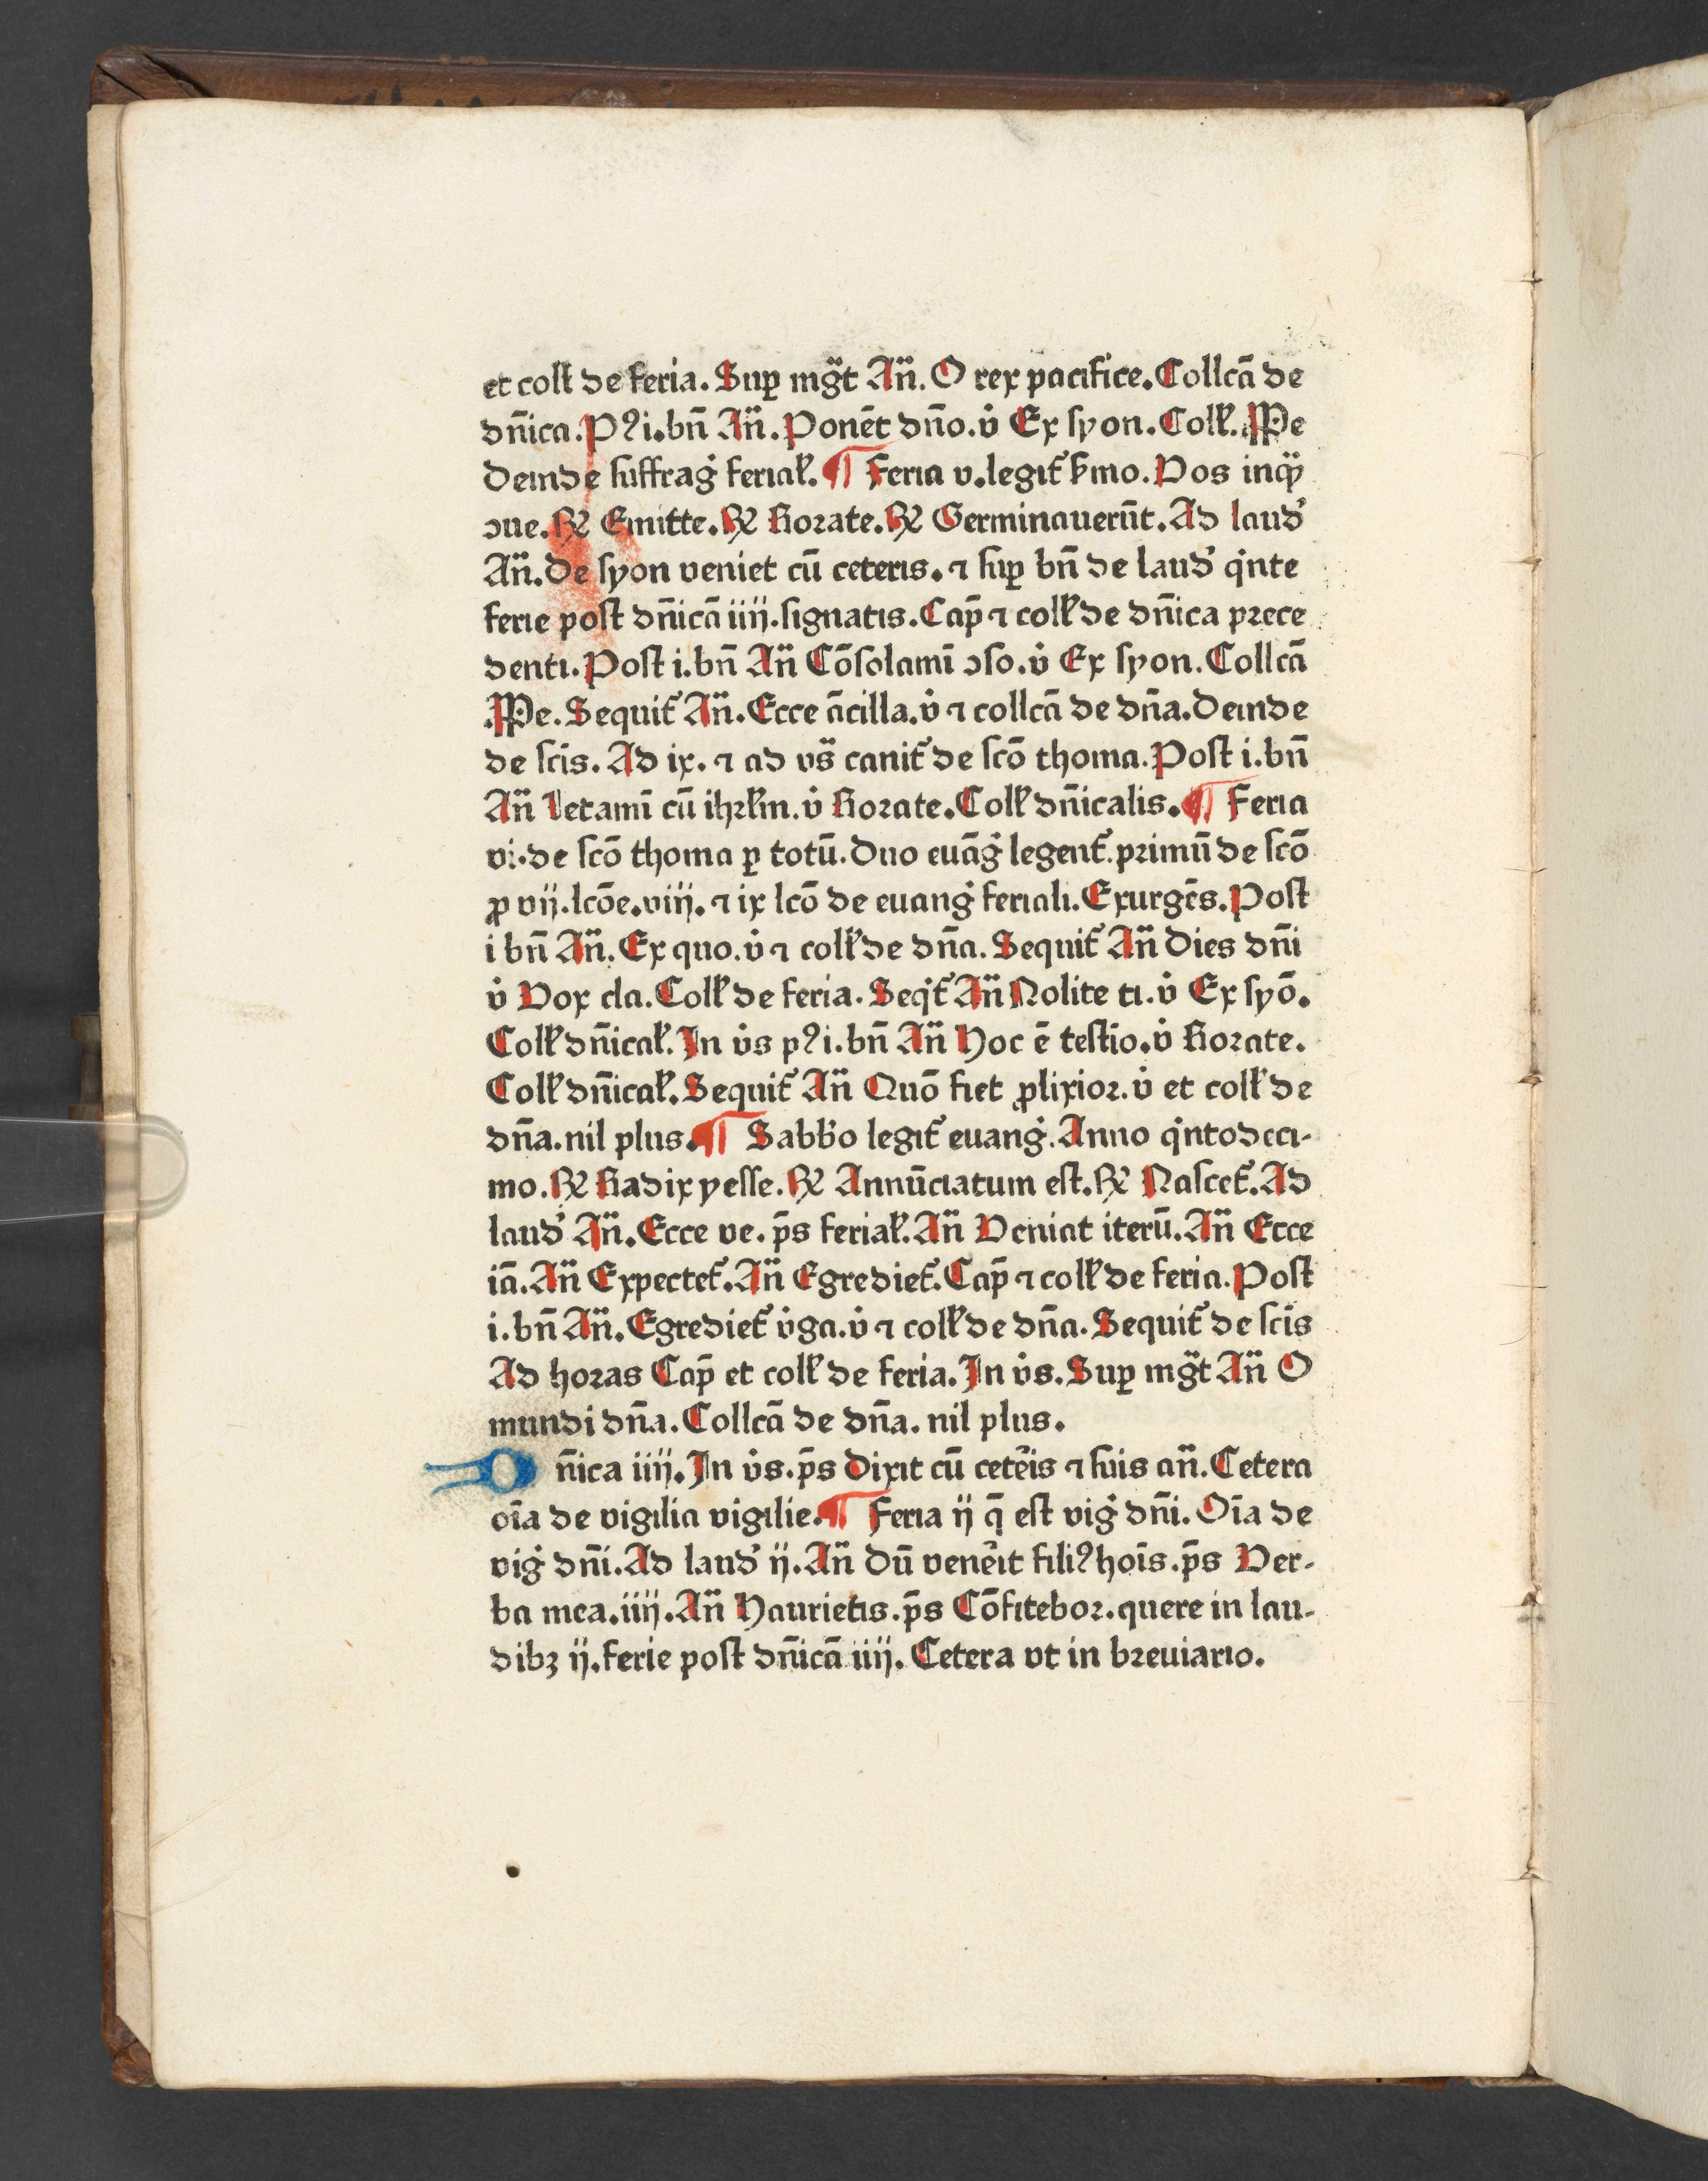 et coll̄ de feria. Suꝑ mg̈t An̈. O rex pacifice. Collcā de
dn̄ica. Pꝰ i. bn̄ An̈. Ponēt dn̄o. v̇ Ex syon. Coll̕. PPe
Deinde suffrag̕ ferial̕. ¶ Feria v. legit̕ ṡmo. Vos inqͣꝫ
ꝯue. ℟ Emitte. ℟ Rorate. ℟ Germinauerūt. Ad laud̕
An̈. De syon veniet cū ceteris. ⁊ suꝑ bn̄ de laud̕ qͥnte
ferie post dn̄icā iiij. signatis. Cap̄ ⁊ coll̕ de dn̄ica prece
denti. Post i. bn̄ An̈ Cōsolamī ꝯso. v̇ Ex syon. Collcā
PPe. Sequit̕ An̈. Ecce ācilla. v̇ ⁊ collcā de dn̄a. Deinde
de scīs. Ad ix. ⁊ ad vs̈ canit̕ de scō thoma. Post i. bn̄
An̈ Letamī cū ihrl̕m. v̇ Rorate. Coll̕ dn̄icalis. ¶ Feria
vi. de scō thoma ꝑ totū. Duo euāg̕ legent̕. primū de scō
ꝓ vij. lcōe. viij. ⁊ ix lcō de euang̕ feriali. Exurgēs. Post
i bn̄ An̈. Ex quo. v̇ ⁊ coll̕ de dn̄a. Sequit̕ An̈ Dies dn̄i
v̇ Vox cla. Coll̕ de feria. Seqͥt̕ An̈ Nolite ti. v̇ Ex syō.
Coll̕ dn̄ical̕. In v̇s pꝰ i. bn̄ An̈ Hoc ē testīo. v̇ Rorate.
Coll̕ dn̄ical̕. Sequit̕ An̈ Quō fiet ꝓlixior. v̇ et coll̕ de
dn̄a. nil plus. ¶ Sabb̕o legit̕ euang̕. Anno qͥntodeci-
mo. ℟ Radix yesse. ℟ Annūciatum est. ℟ Nascet̕. Ad
laud̕ An̈. Ecce ve. ps̄ ferial̕. An̈ Veniat iterū. An̈ Ecce
iā. An̈ Expectet̕. An̈ Egrediet̕. Cap̄ ⁊ coll̕ de feria. Post
i. bn̄ An̈. Egrediet̕ v̇ga. v̇ ⁊ coll̕ de dn̄a. Sequit̕ de scīs
Ad horas Cap̄ et coll̕ de feria. In v̇s. Suꝑ mg̈t An̈ O
mundi dn̄a. Collcā de dn̄a. nil plus.
Dn̄ica iiij. In v̇s. ps̄ Dixit cū cete̕is ⁊ suis an̈. Cetera
oīa de vigilia vigilie. ¶ Feria ij q̄ est vig̕ dn̄i. Oīa de
vig̕ dn̄i. Ad laud̕ ij. An̈ Dū vene̕it filiꝰ hoīs. ps̄ Ver-
ba mea. iiij. An̈ Haurietis. ps̄ Cōfitebor. quere in lau-
dibꝫ ij. ferie post dn̄icā iiij. Cetera vt in breuiario.